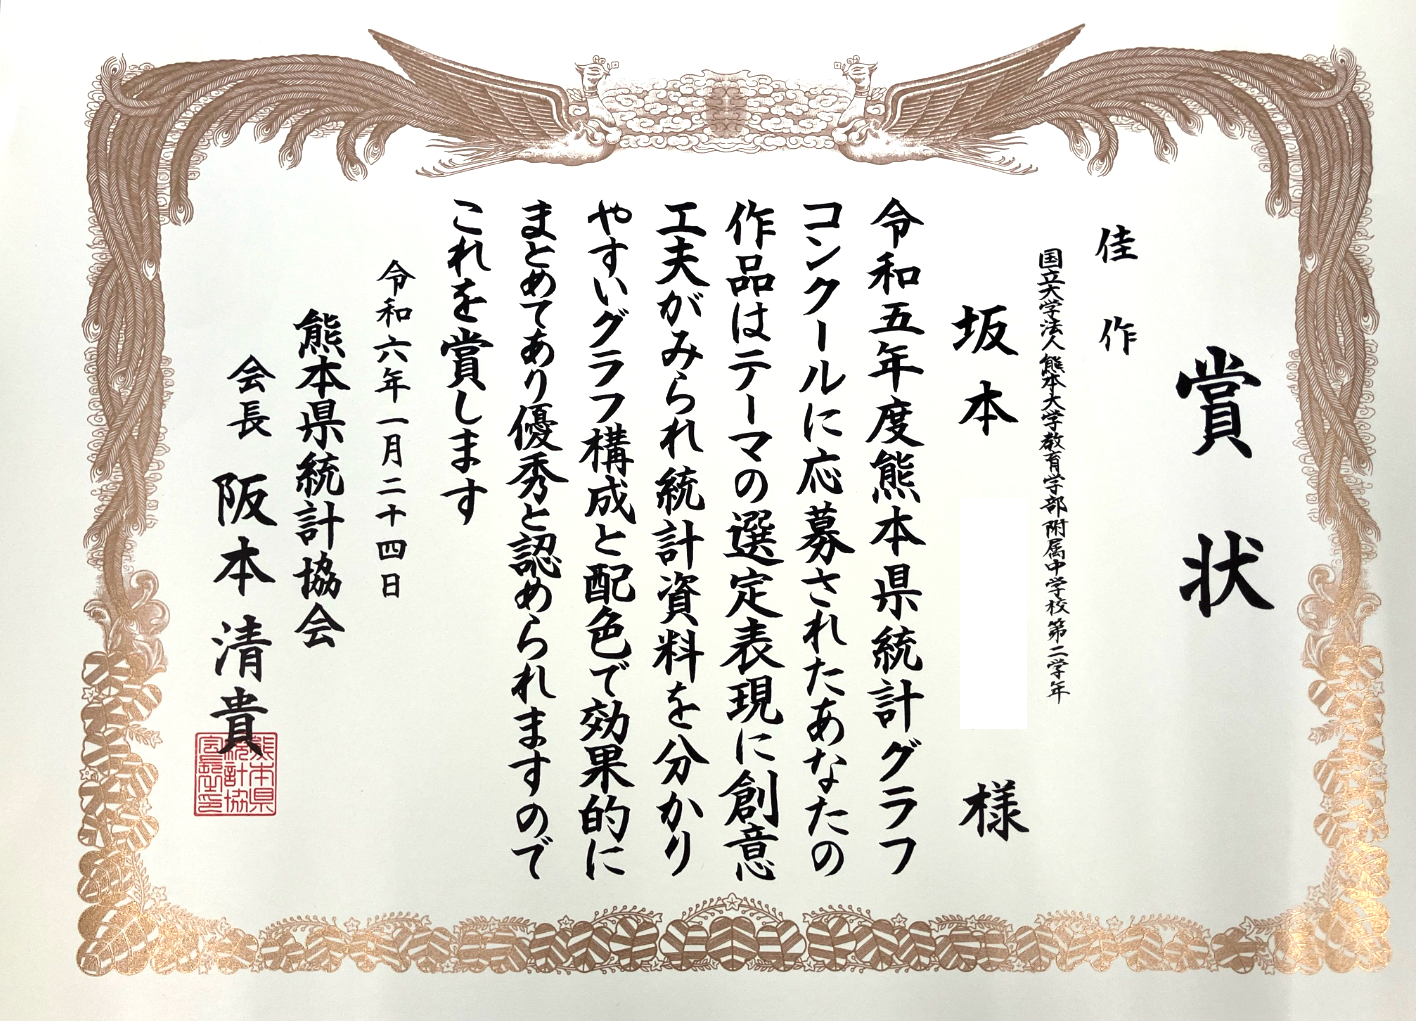 賞状
佳作
国立大学法人熊本大学教育学部附属中学校第二学年
坂本 様
令和五年度熊本県統計グラフ
コンクールに応募されたあなたの
作品はテーマの選定表現に創意
工夫がみられ統計資料を分かり
やすいグラフ構成と配色で効果的に
まとめてあり優秀と認められますので
これを賞します
令和六年一月二十四日
熊本県統計協会
会長 阪本清貴
熊本県
統計協
会長之印